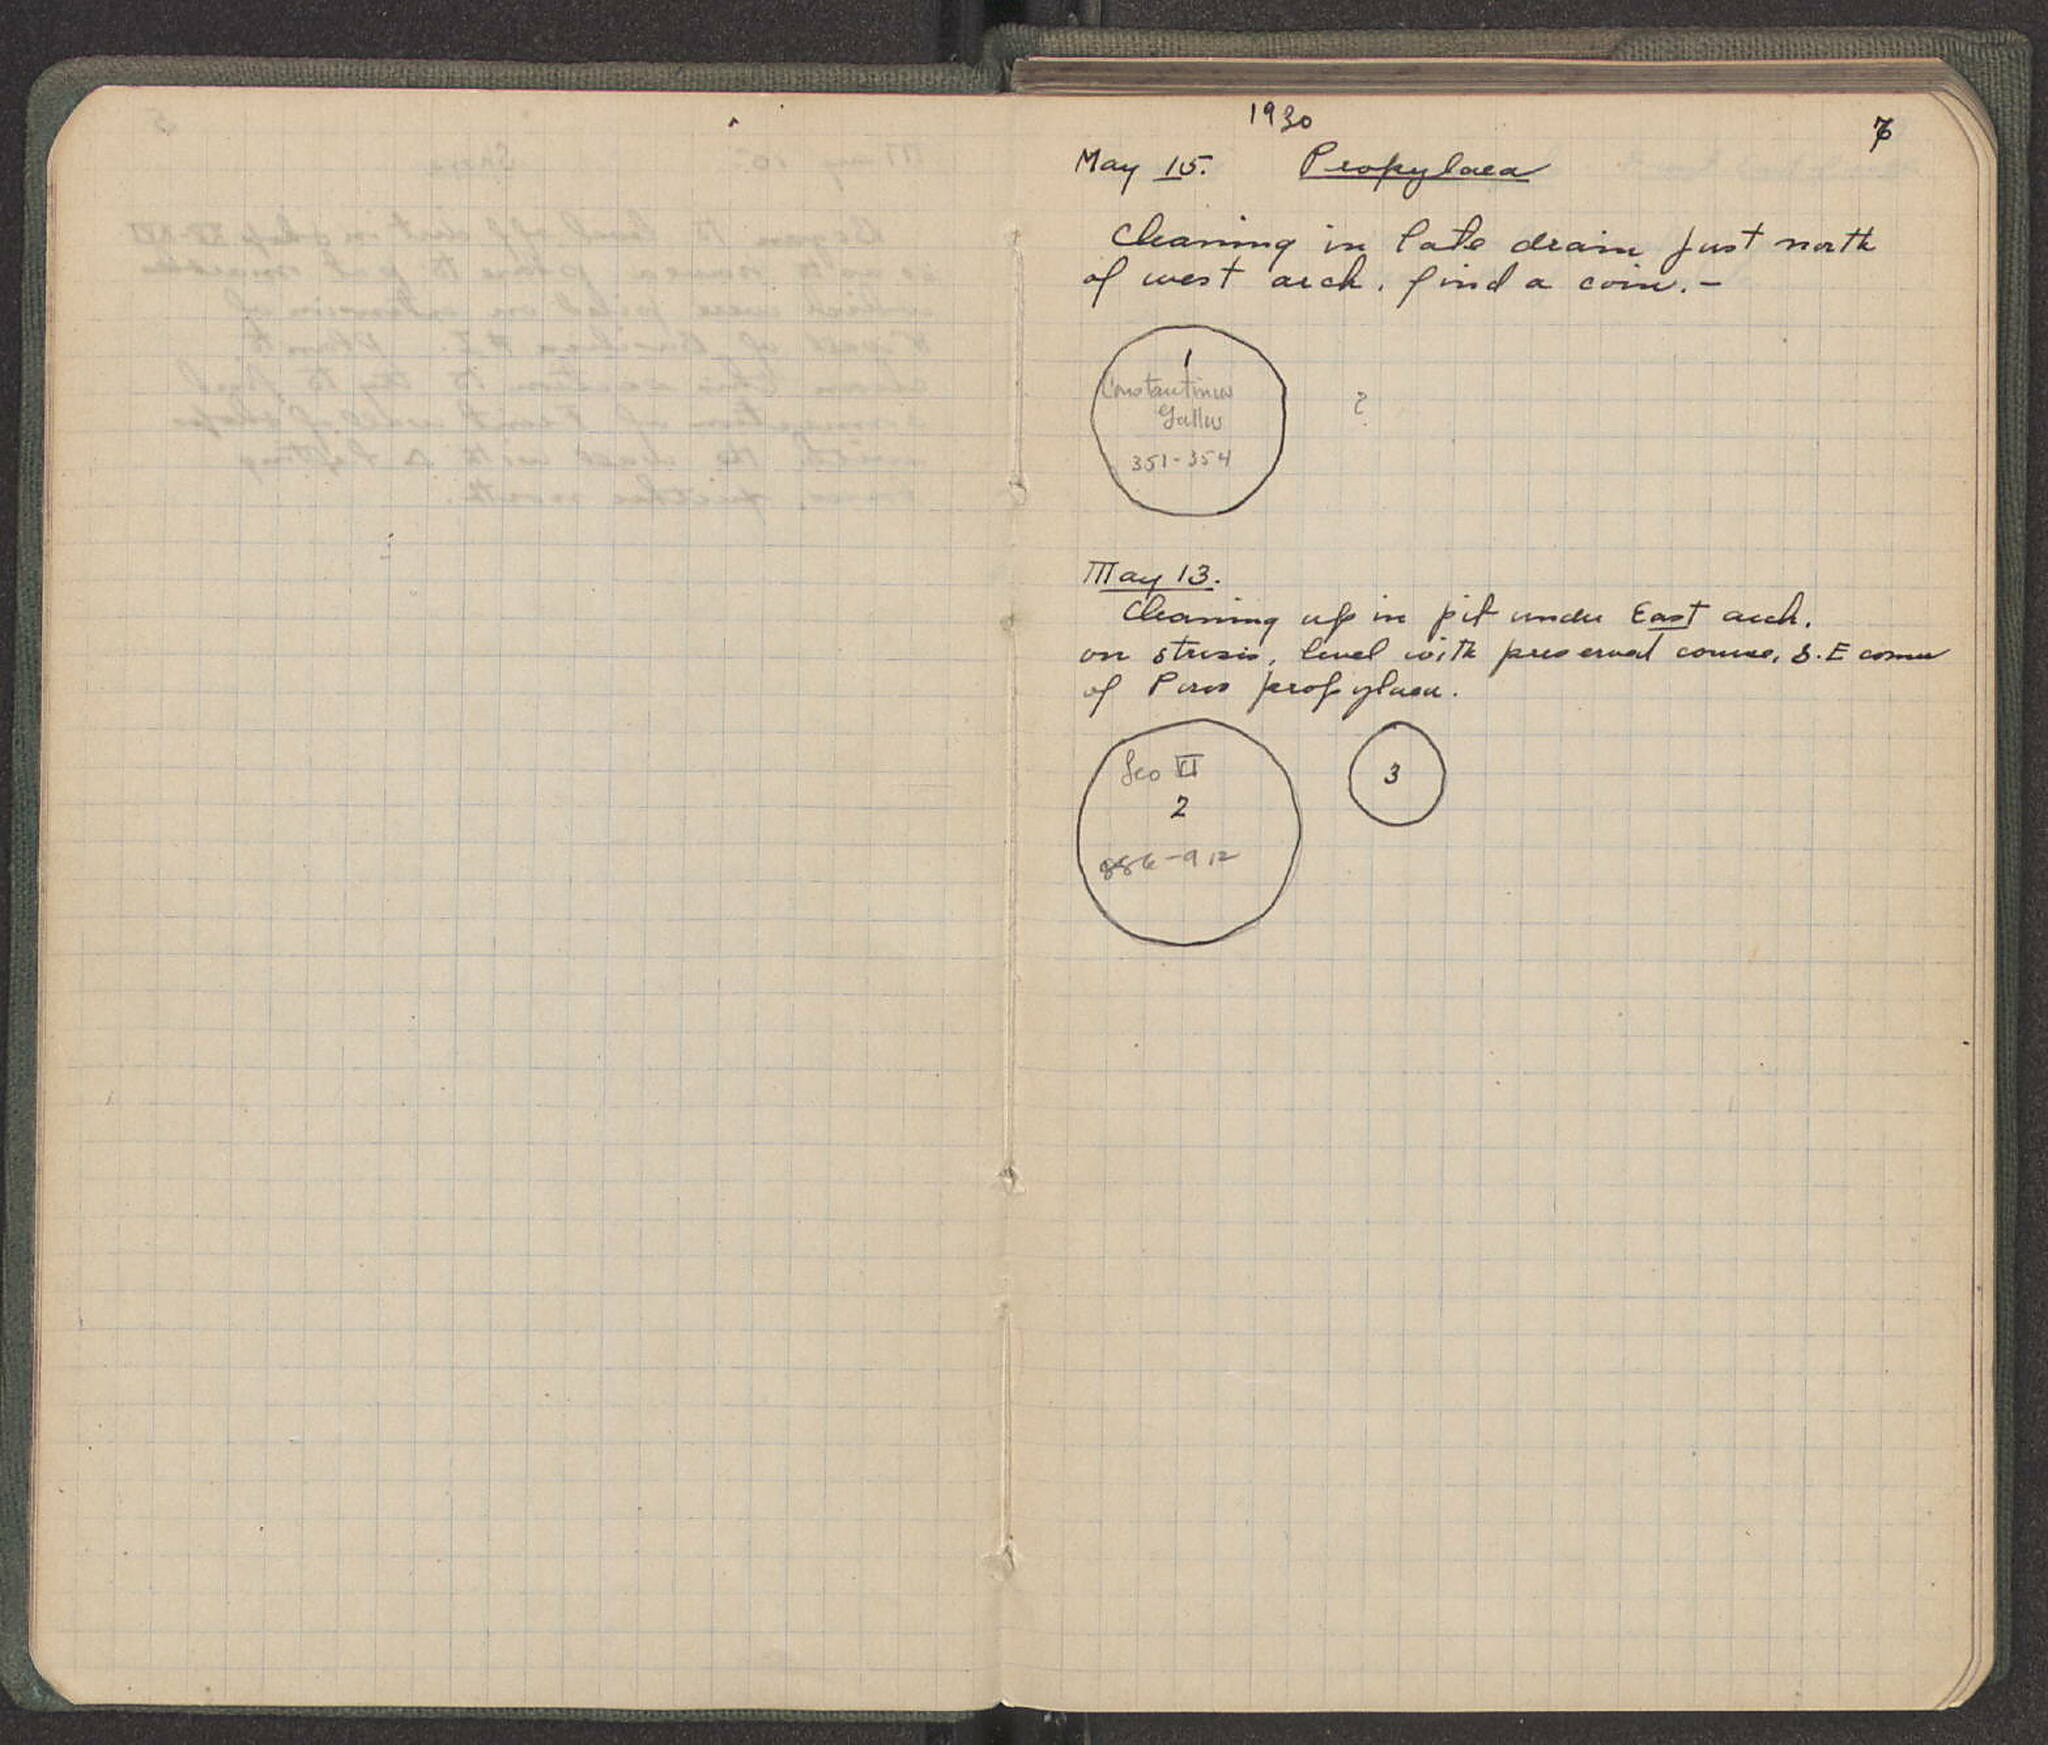 1930
7
May 15. Propylaea
Cleaning in late drain just north
of west arch. find a coin.-
1
Constantinus
Gallus
351-354
?
May 13.
Cleaning up in pit under East arch.
on strosis, level with preserved course, S.E corner
of Poros propylaea.
Leo VI
2
886-912
3